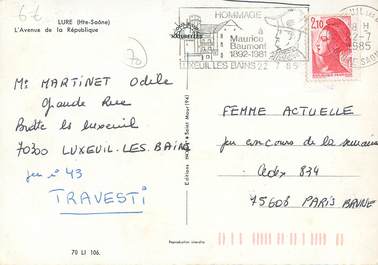 6 €
LURE (Hte-Saône)
L'Avenue de la République
70
HOMMAGE
à
Maurice
Baumont
1892-1981
LUXEUIL LES BAINS
2,10
18 H
22-7
1985
Me MARTINET Odile
Grande Rue
Brotte les Luxeuil
70300 LUXEUIL-LES-BAINS
jeu n° 43
TRAVESTI
FEMME ACTUELLE
jeu concours de la semaine
Cedex 834
75608 PARIS BRUNE
Reproduction interdite
70 LI 106.